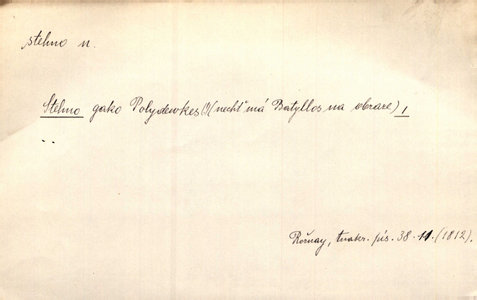 stehno n.
Stehno gako Polydewkes (!) (nechť má Batyllos na obraze) !
Rožnay, Anakr. pís. 38. 11. (1812).